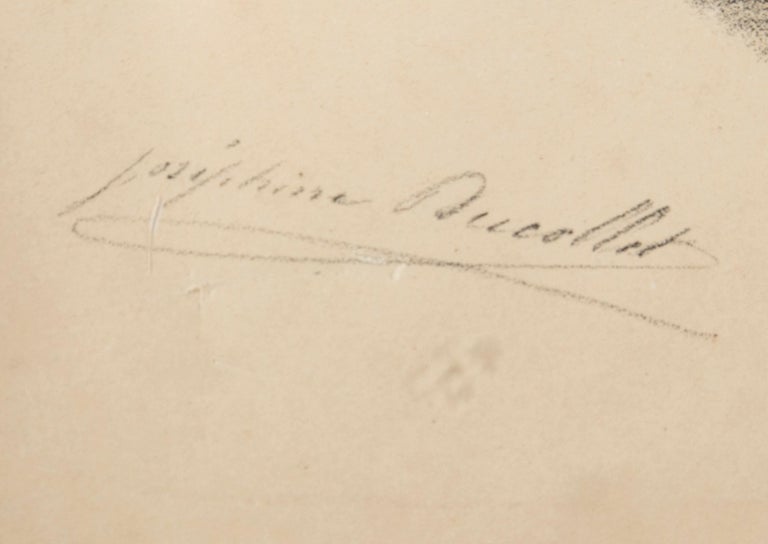 Joséphine Ducollet